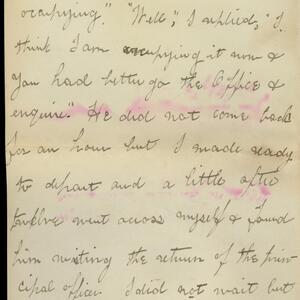 occupying." "Well", I replied, "I
think I am occupying it now &
you had better go the Office &
enquire". He did not come back
for an hour but I made ready
to depart and a little after
twelve went across myself & found
him waiting the return of the prin-
cipal officer. I did not wait but